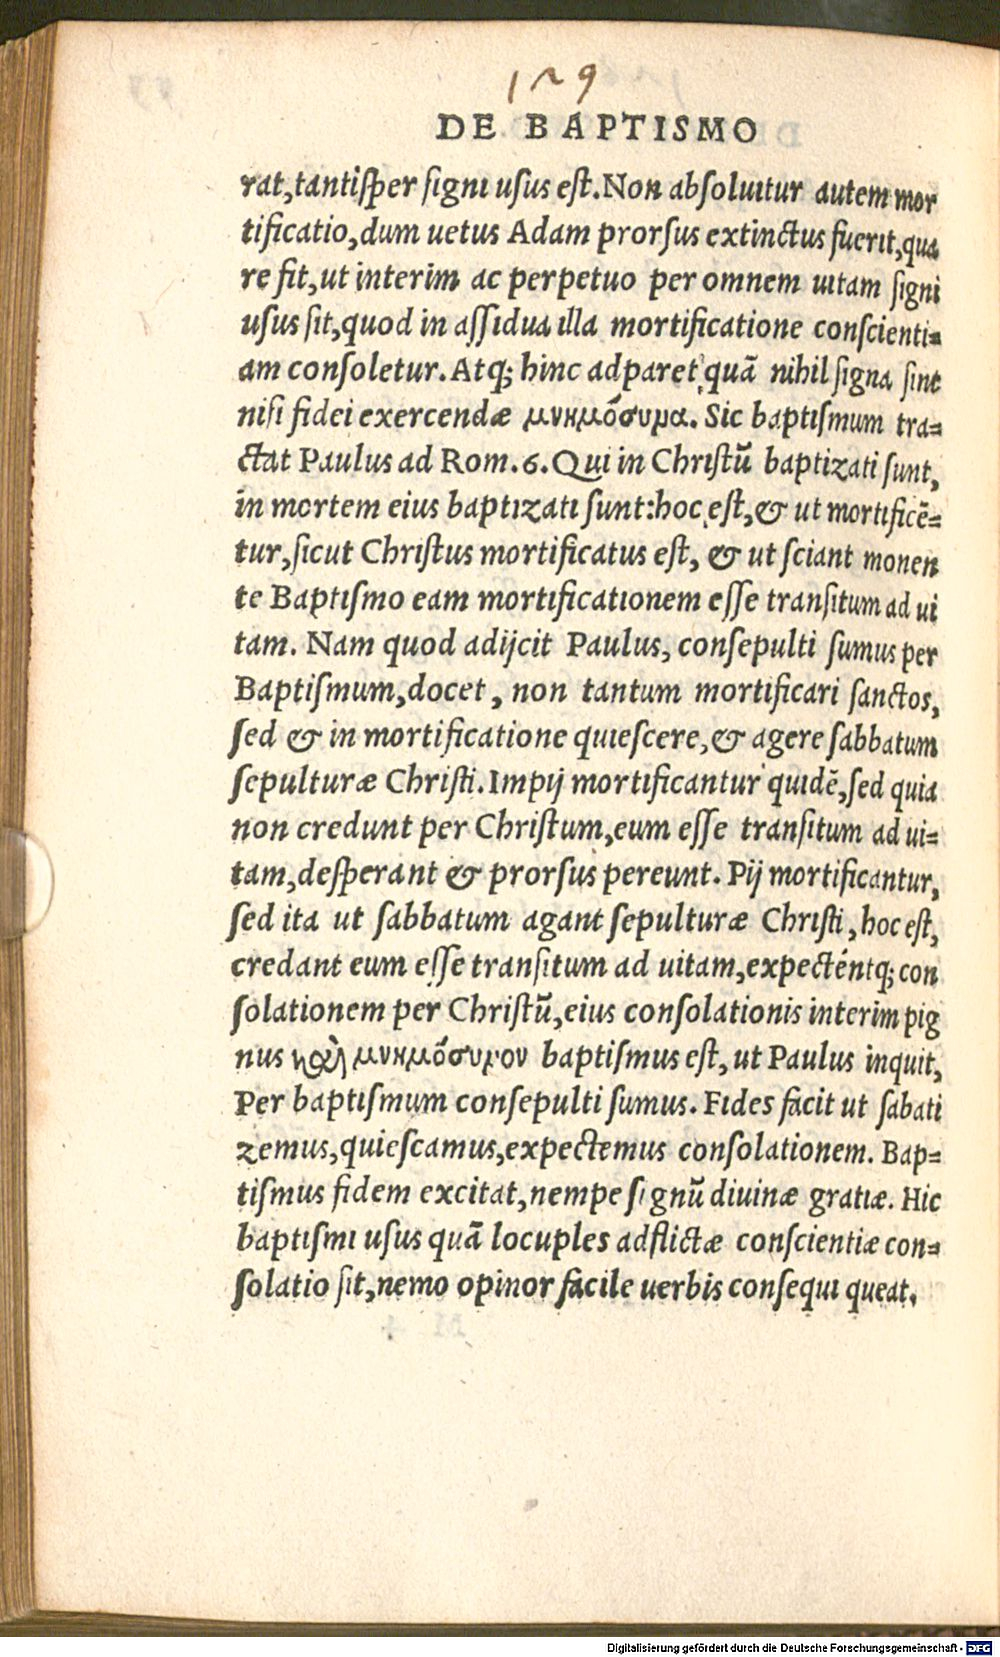 129
DE BAPTISMO
rat,tantisper signi usus est.Non absoluitur autem mor
tificatio,dum uetus Adam prorsus extinctus fuerit,qua
re fit,ut interim ac perpetuo per omnem uitam signi
usus sit,quod in assidua illa mortificatione conscienti-
am consoletur.Atq; hinc adparet quã nihil signa sint
nisi fidei exercendæ μνημόσυνα. Sic baptismum tra-
ctat Paulus ad Rom.6.Qui in Christũ baptizati sunt,
in mortem eius baptizati sunt:hoc est,& ut mortificẽ-
tur,sicut Christus mortificatus est, & ut sciant monen
te Baptismo eam mortificationem esse transitum ad ui
tam. Nam quod adijcit Paulus, consepulti sumus per
Baptismum,docet, non tantum mortificari sanctos,
sed & in mortificatione quiescere,& agere sabbatum
sepulturæ Christi.Impij mortificantur quidẽ,sed quia
non credunt per Christum,eum esse transitum ad ui-
tam,desperant & prorsus pereunt. Pij mortificantur,
sed ita ut sabbatum agant sepulturæ Christi,hoc est,
credant eum esse transitum ad uitam,expectẽntq; con
solationem per Christũ,eius consolationis interim pig
nus καὶ μνημόσυνον baptismus est, ut Paulus inquit,
Per baptismum consepulti sumus. Fides facit ut sabati
zemus,quiescamus,expectemus consolationem. Bap-
tismus fidem excitat,nempe signũ diuinæ gratiæ. Hic
baptismi usus quã locuples adflictæ conscientiæ con-
solatio sit,nemo opinor facile uerbis consequi queat.
Digitalisierung gefördert durch die Deutsche Forschungsgemeinschaft - DFG